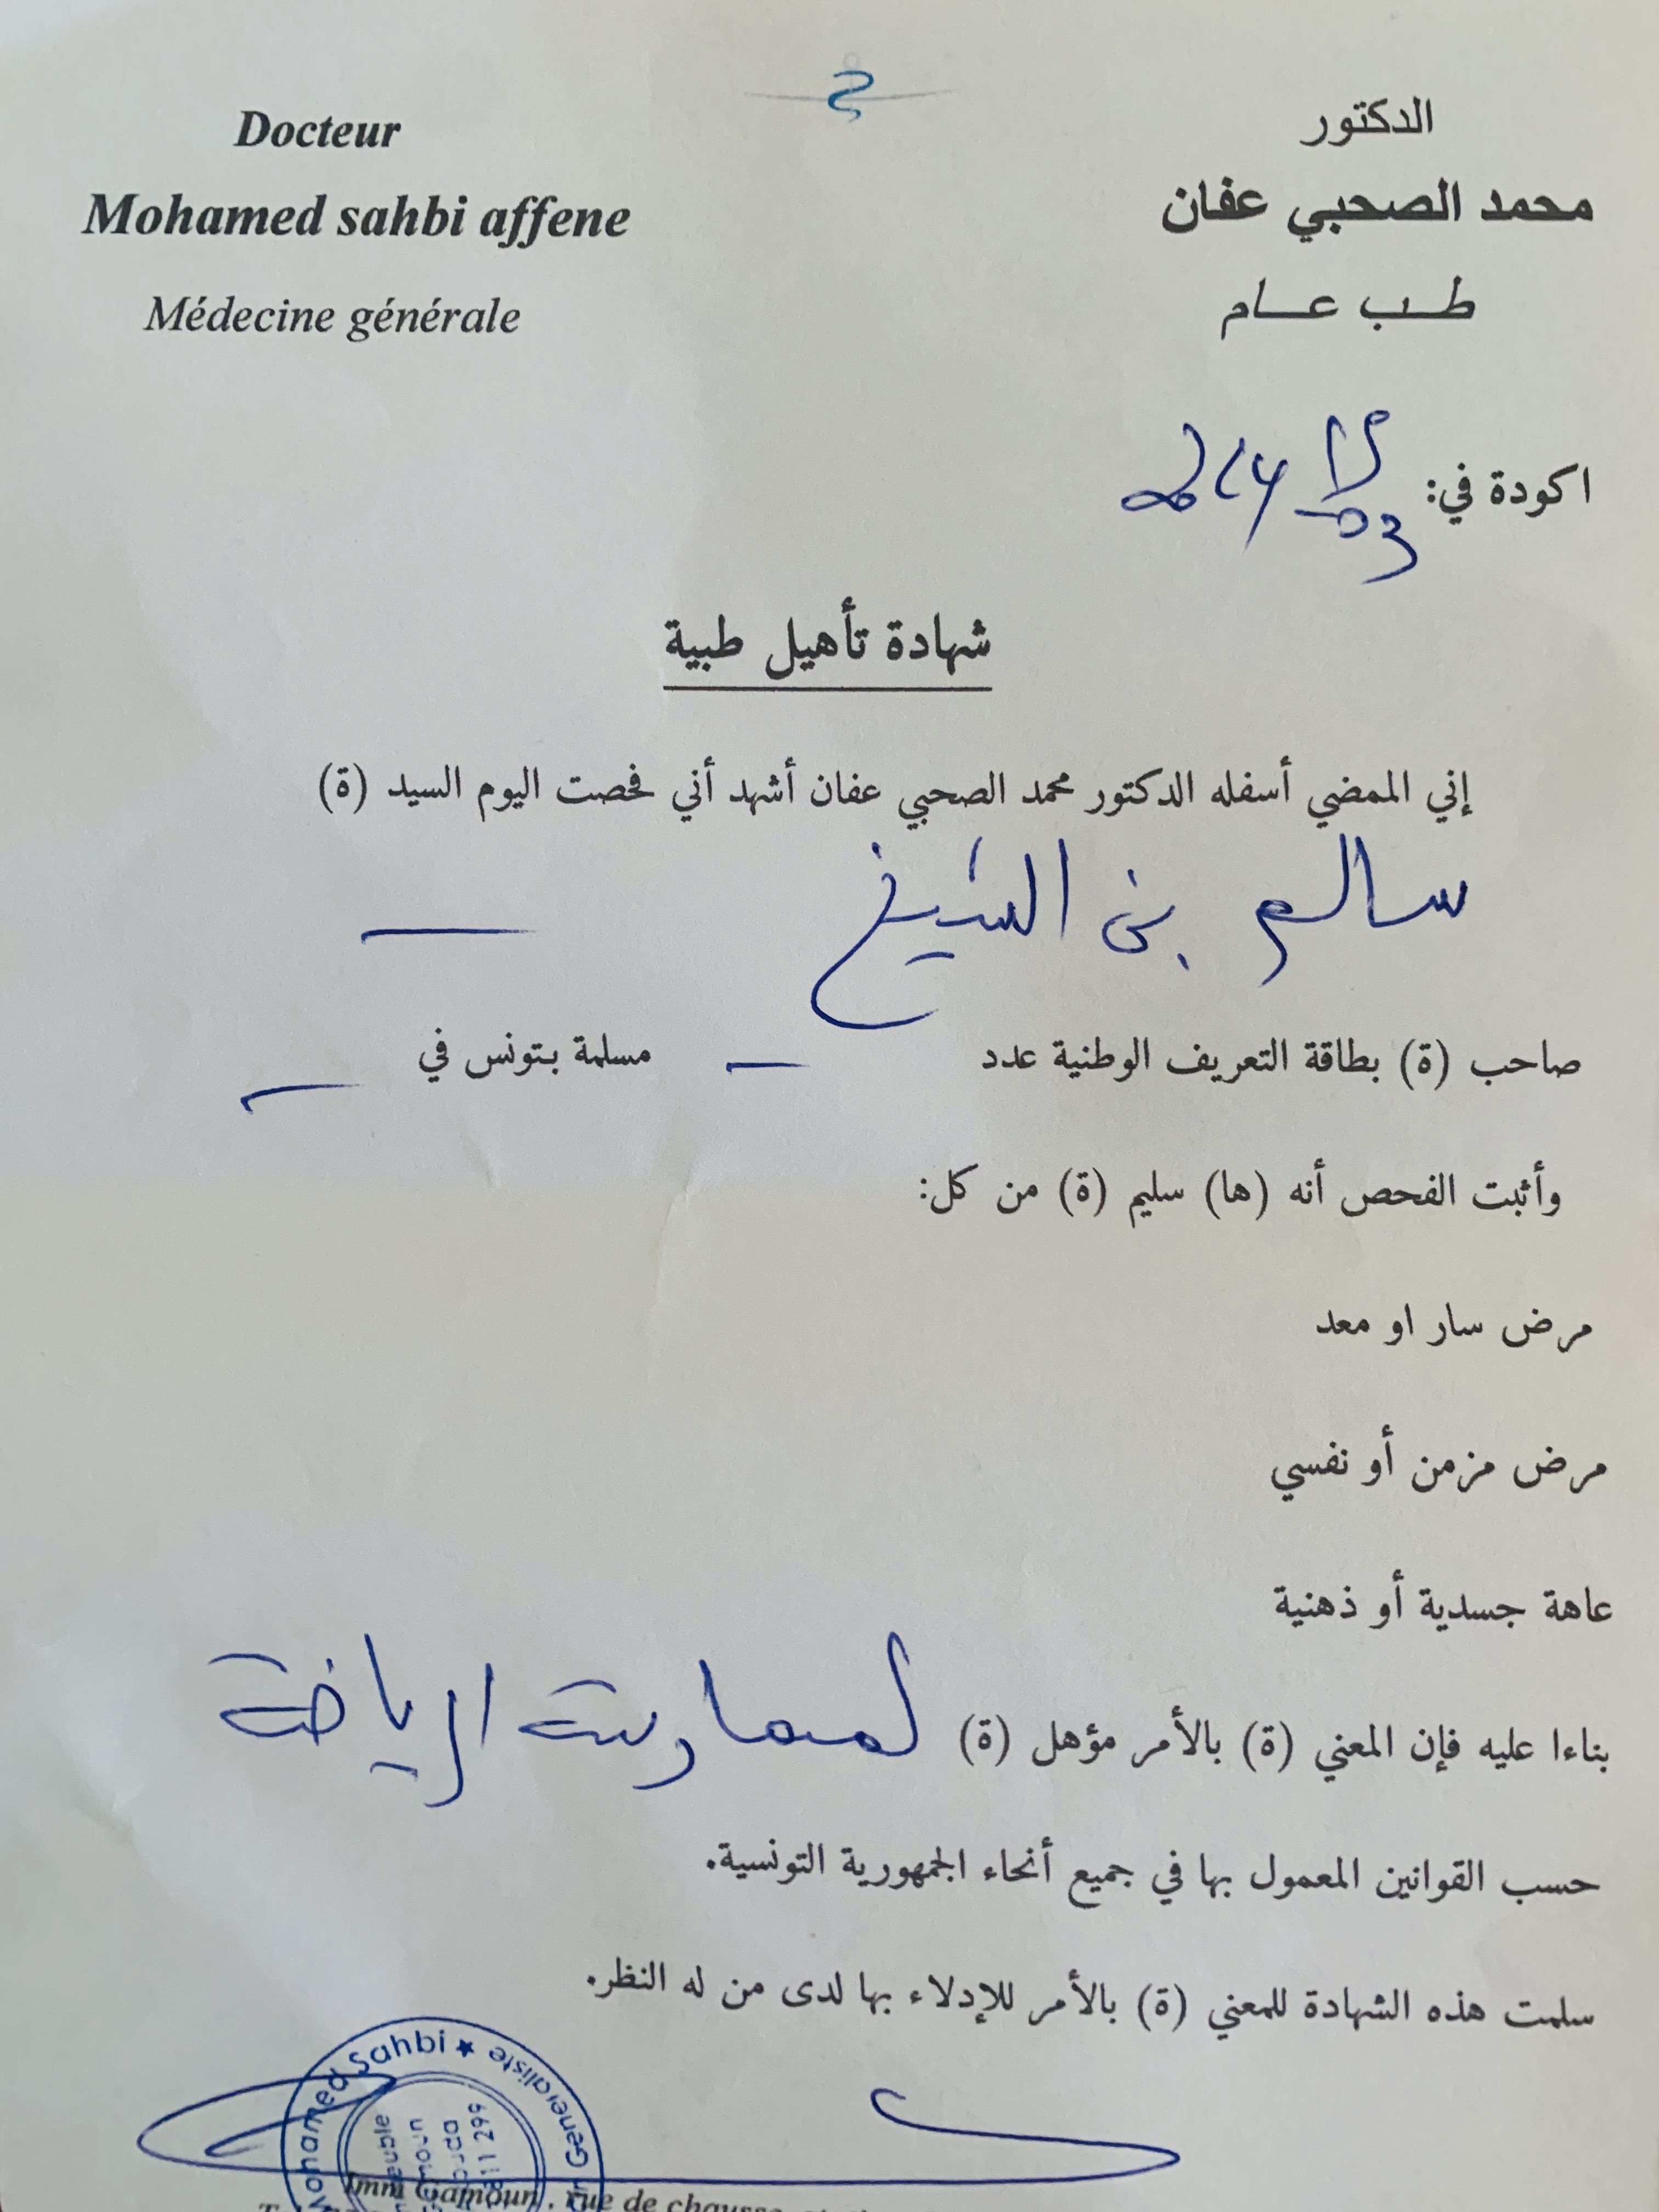 Docteur
Mohamed sahbi affene
Médecine générale
الدكتور
محمد الصحبي عفان
طب عام
اكودة في:
شهادة تأهيل طبية
إني الممضي أسفله الدكتور محمد الصحبي عفان أشهد أني فحصت اليوم السيد (ة)
سالم بن الشيخ
صاحب (ة) بطاقة التعريف الوطنية عدد — مسلمة بتونس في —
وأثبت الفحص أنه (ها) سليم (ة) من كل:
مرض سار او معد
مرض مزمن أو نفسي
عاهة جسدية أو ذهنية
بناءا عليه فإن المعني (ة) بالأمر مؤهل (ة) لممارسة الرياضة
حسب القوانين المعمول بها في جميع أنحاء الجمهورية التونسية.
سلمت هذه الشهادة للمعني (ة) بالأمر للإدلاء بها لدى من له النظر.
Mohamed Sahbi ★ Generaliste
Imm Gamoun , rue de